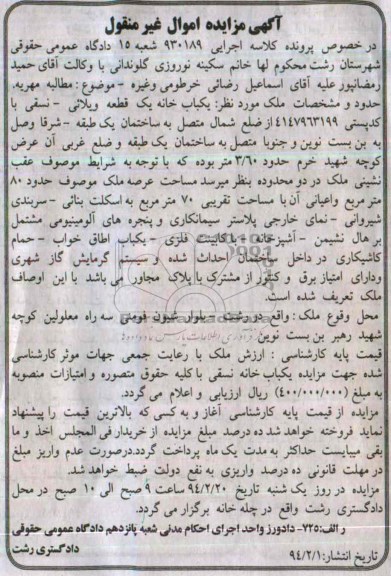 آگهی مزایده اموال غیر منقول
در خصوص پرونده کلاسه اجرایی ۹۳۰۱۸۹ شعبه ۱۵ دادگاه عمومی حقوقی
شهرستان رشت محکوم لها خانم سکینه نوروزی گلوندانی با وکالت آقای حمید
رمضانپور علیه آقای اسماعیل رضائی خرطومی وغیره - موضوع: مطالبه مهریه.
حدود و مشخصات ملک مورد نظر: یکباب خانه یک قطعه ویلائی - نسقی با
کدپستی ۴۱۴۷۹۶۳۱۹۹ از ضلع شمال متصل به ساختمان یک طبقه - شرقا وصل
به بن بست نوین و جنوبا متصل به ساختمان یک طبقه و ضلع غربی آن عرض
کوچه شهید خرم حدود ۳/۶۰ متر بوده که با توجه به شرایط موصوف عقب
نشینی ملک در دو محدوده بنظر میرسد مساحت عرصه ملک موصوف حدود ۸۰
متر مربع واعیانی آن با مساحت تقریبی ۷۰ متر مربع به اسکلت بنائی - سربندی
شیروانی - نمای خارجی پلاستر سیمانکاری و پنجره های آلومینیومی مشتمل
بر هال نشیمن - آشپزخانه - با کابینت فلزی - یکباب اطاق خواب - حمام
کاشیکاری در داخل ساختمان احداث شده و سیستم گرمایش گاز شهری
ودارای امتیاز برق و کنتور از مشترک با پلاک مجاور می باشد با این اوصاف
ملک تعریف شده است.
محل وقوع ملک: واقع در رشت - بلوار شیون فومنی سه راه معلولین کوچه
شهید رهبر بن بست نوین
قیمت پایه کارشناسی : ارزش ملک با رعایت جمعی جهات موثر کارشناسی
شده جهت مزایده یکباب خانه نسقی با کلیه حقوق متصوره و امتیازات منصوبه
به مبلغ (۴۰۰/۰۰۰/۰۰۰) ریال ارزیابی و اعلام می گردد.
مزایده از قیمت پایه کارشناسی آغاز و به کسی که بالاترین قیمت را پیشنهاد
نماید فروخته خواهد شد ده درصد مبلغ مزایده از خریدار فی المجلس اخذ و ما
بقی میبایست حداکثر به مدت یک ماه پرداخت گردد.درصورت عدم واریز مبلغ
در مهلت قانونی ده درصد واریزی به نفع دولت ضبط خواهد شد.
مزایده در روز یک شنبه تاریخ ۹۴/۲/۲۰ ساعت ۹ صبح الی ۱۰ صبح در محل
دادگستری رشت واقع در چله خانه برگزار می گردد.
ر الف:۷۲۵- دادورز واحد اجرای احکام مدنی شعبه پانزدهم دادگاه عمومی حقوقی
دادگستری رشت
تاریخ انتشار: ۹۴/۲/۱